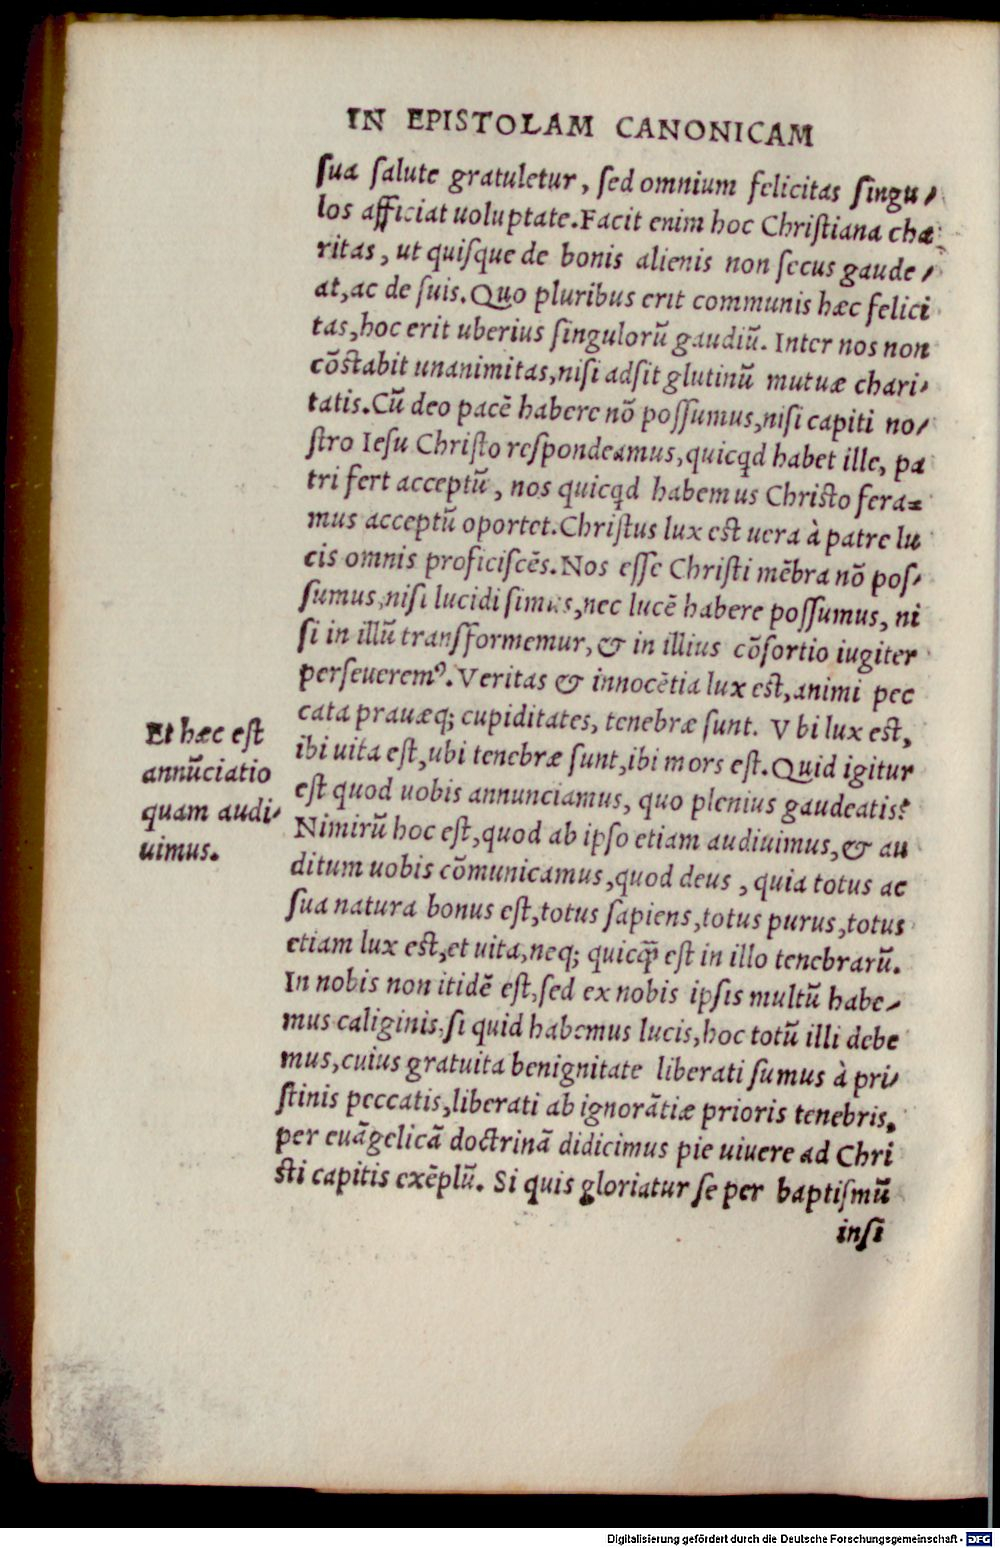 IN EPISTOLAM CANONICAM
sua salute gratuletur, sed omnium felicitas singu⸗
los afficiat uoluptate. Facit enim hoc Christiana cha
ritas, ut quisque de bonis alienis non secus gaude⸗
at, ac de suis. Quo pluribus erit communis hæc felici
tas, hoc erit uberius singulorũ gaudiũ. Inter nos non
cõstabit unanimitas, nisi adsit glutinũ mutuæ chari⸗
tatis. Cũ deo pacẽ habere nõ possumus, nisi capiti no⸗
stro Iesu Christo respondeamus, quicꝗd habet ille, pa
tri fert acceptũ, nos quicꝗd habemus Christo fera⸗
mus acceptũ oportet. Christus lux est uera à patre lu
cis omnis proficiscẽs. Nos esse Christi mẽbra nõ pos⸗
sumus, nisi lucidi simus, nec lucẽ habere possumus, ni
si in illũ transformemur, & in illius cõsortio iugiter
perseueremꝰ. Veritas & innocẽtia lux est, animi pec
cata prauæq; cupiditates, tenebræ sunt. Vbi lux est,
ibi uita est, ubi tenebræ sunt, ibi mors est. Quid igitur
est quod uobis annunciamus, quo plenius gaudeatis?
Nimirũ hoc est, quod ab ipso etiam audiuimus, & au
ditum uobis cõmunicamus, quod deus, quia totus ac
sua natura bonus est, totus sapiens, totus purus, totus
etiam lux est, et uita, neq; quicq̃ est in illo tenebrarũ.
In nobis non itidẽ est, sed ex nobis ipsis multũ habe⸗
mus caliginis, si quid habemus lucis, hoc totũ illi debe
mus, cuius gratuita benignitate liberati sumus à pri⸗
stinis peccatis, liberati ab ignorãtiæ prioris tenebris,
per euãgelicã doctrinã didicimus pie uiuere ad Chri
sti capitis exẽplũ. Si quis gloriatur se per baptismũ
insi
Et hæc est
annũciatio
quam audi⸗
uimus.
Digitalisierung gefördert durch die Deutsche Forschungsgemeinschaft - DFG